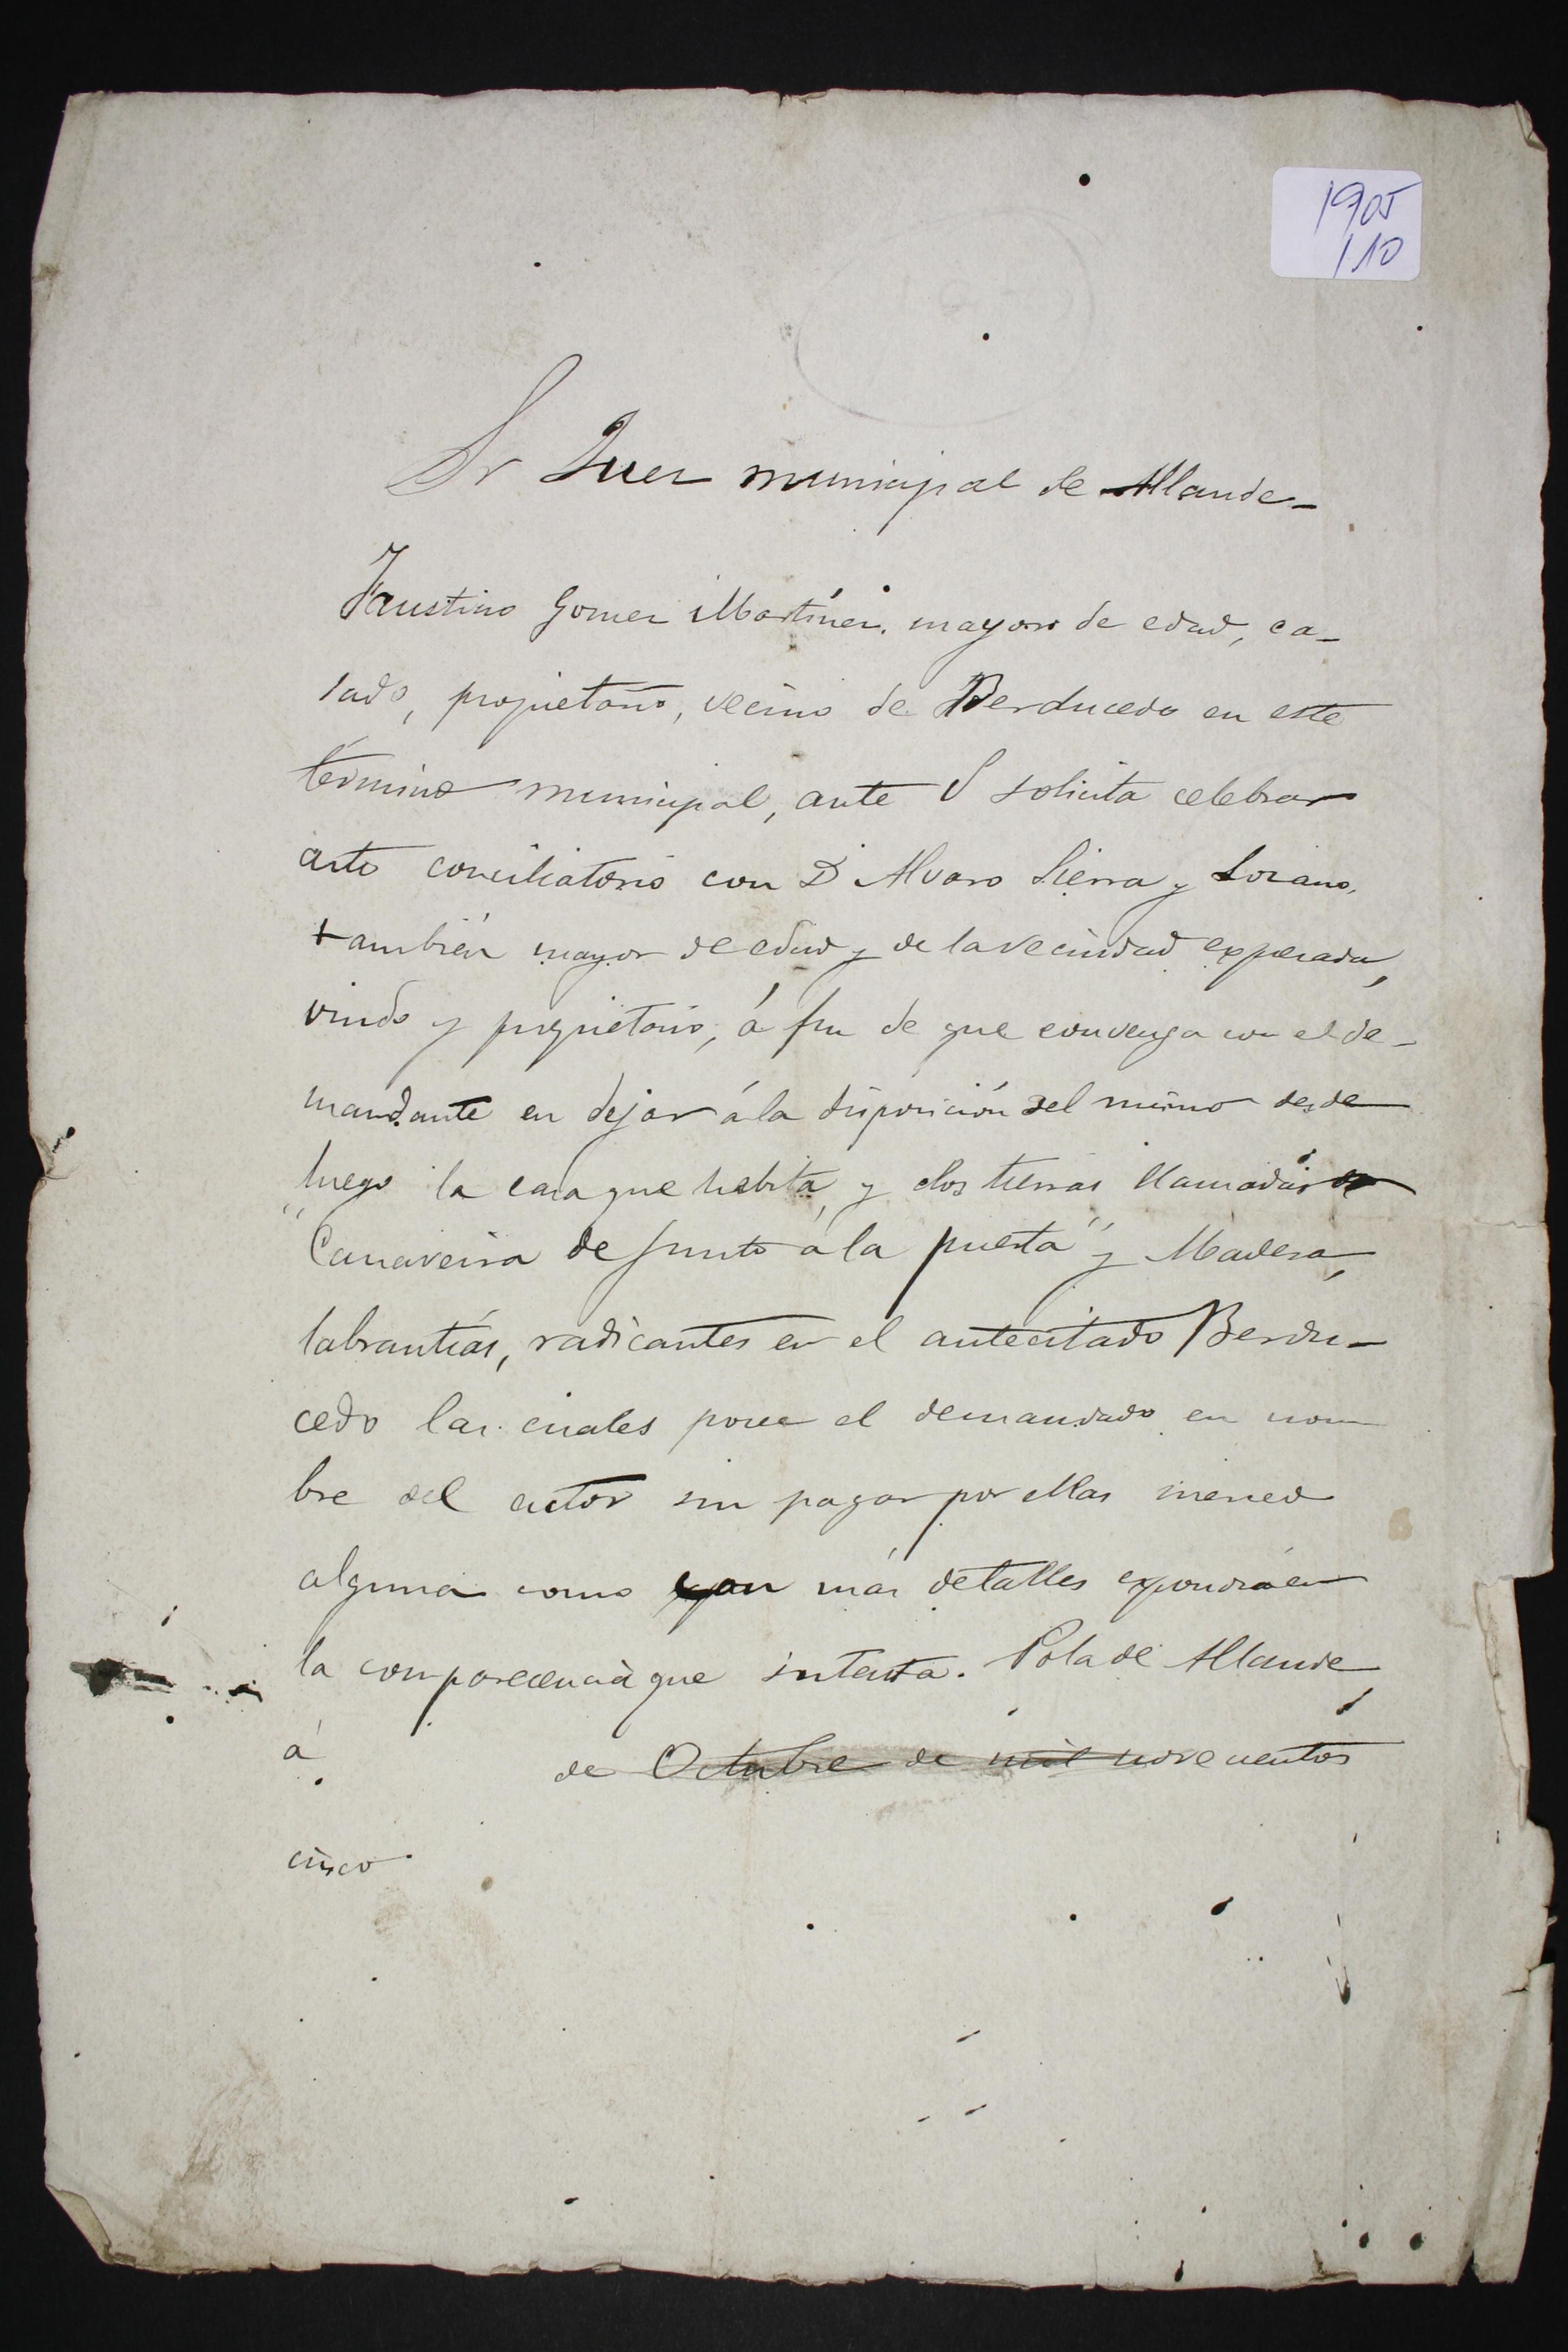 1905
110
Sr Juez municipal de Allande_
Faustino Gomez Martínez, mayor de edad, ca_
sado, propietario, vecino de Berducedo en este
término municipal, ante V solicita celebrar
acto conciliatorio con D. Alvaro Sierra y Lozano,
también mayor de edad y de la vecindad expresada,
viudo y propietario, á fin de que convenga con el de_
mandante en dejar á la disposición del mismo desde
luego la casa que habita, y dos tierras llamadas
"Canaveira de junto á la puerta" y Madera,
labrantías, radicantes en el antecitado Berdu_
cedo las cuales posee el demandado en nom
bre del actor sin pagar por ellas merced
alguna como con más detalles expondrá en
la comparecencia que intenta. Pola de Allande
á de Octubre de mil novecientos
cinco